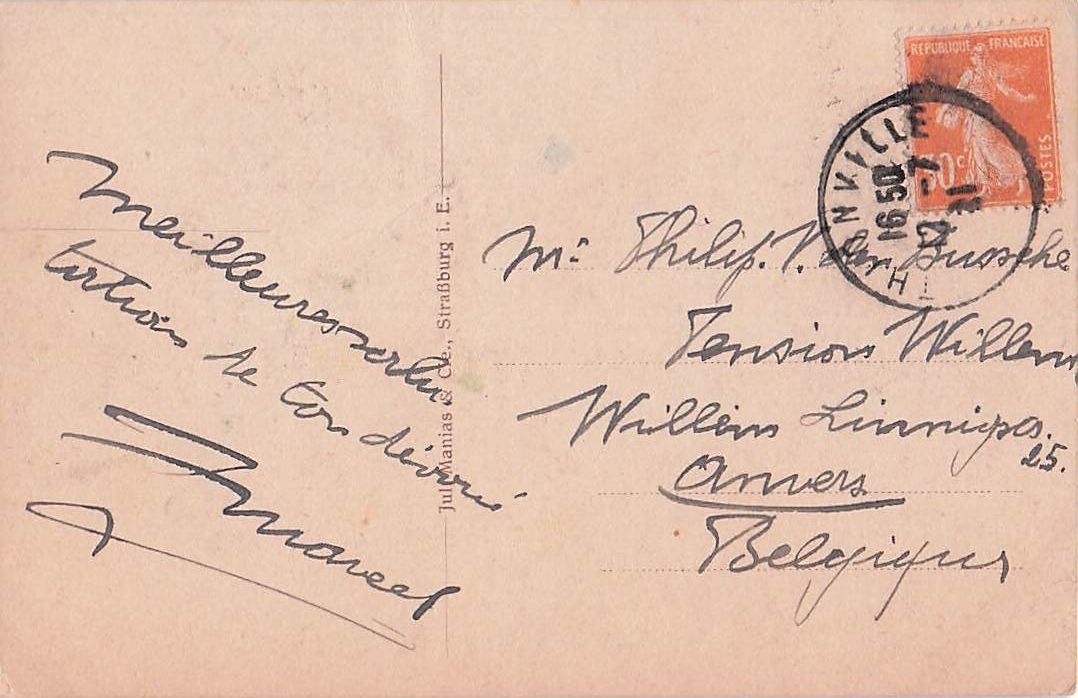 Meilleures salu
tations de ton dévoué
Marcel
Jul. Manias & Cie., Straßburg i. E.
RÉPUBLIQUE FRANÇAISE
POSTES
16 50
12 - 7
21
Mr Philip. V. den Bussche
Pension Willems
Willem
25.
Anvers
Belgique